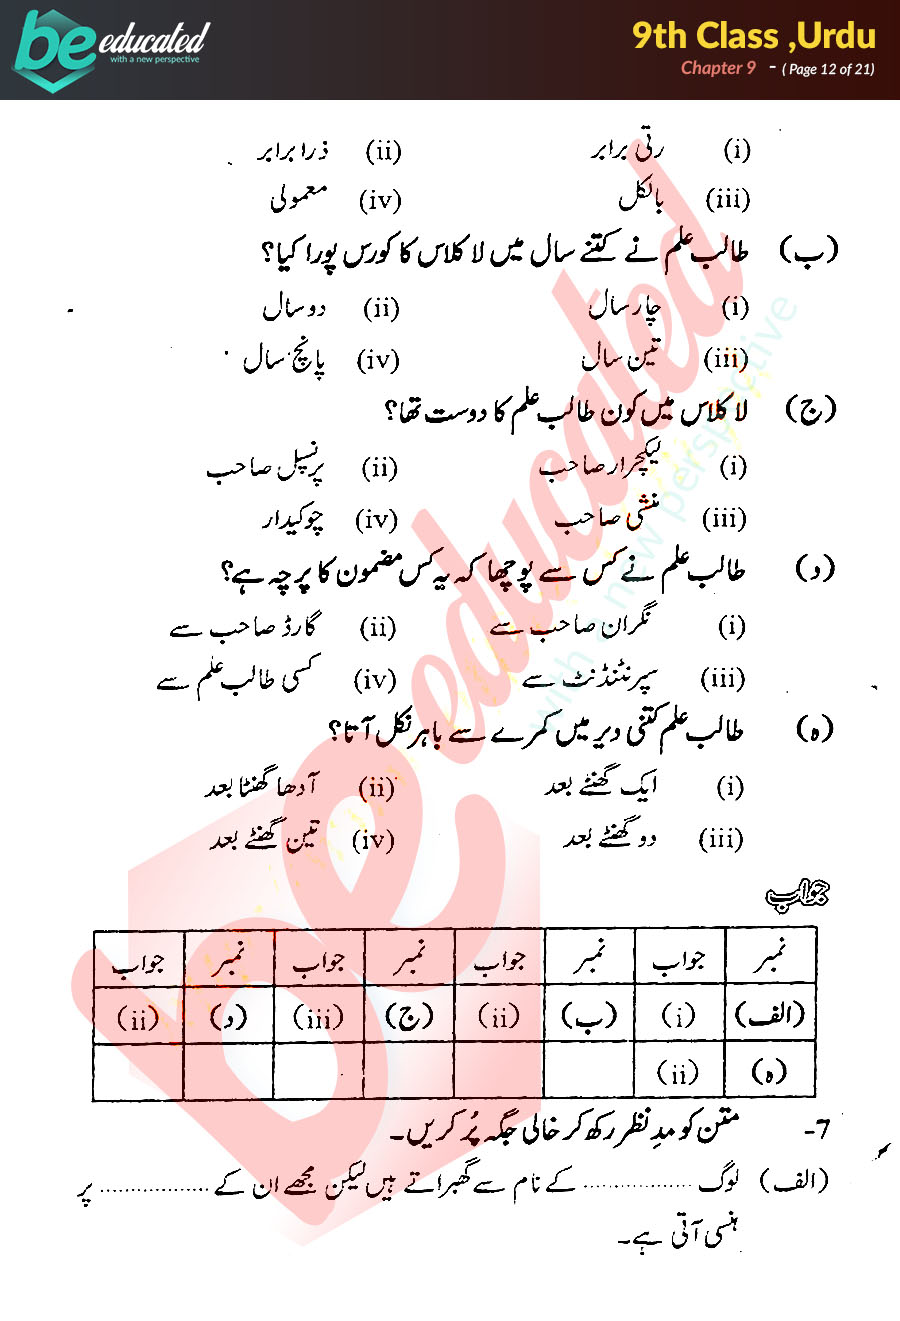 be educated
with a new perspective
9th Class ,Urdu
Chapter 9 - ( Page 12 of 21)
(i) رتی برابر (ii) ذرا برابر
(iii) بالکل (iv) معمولی
(ب) طالب علم نے کتنے سال میں لا کلاس کا کورس پورا کیا؟
(i) چار سال (ii) دو سال
(iii) تین سال (iv) پانچ سال
(ج) لا کلاس میں کون طالب علم کا دوست تھا؟
(i) لیکچرار صاحب (ii) پرنسپل صاحب
(iii) منشی صاحب (iv) چوکیدار
(د) طالب علم نے کس سے پوچھا کہ یہ کس مضمون کا پرچہ ہے؟
(i) نگران صاحب سے (ii) گارڈ صاحب سے
(iii) سپرنٹنڈنٹ سے (iv) کسی طالب علم سے
(ہ) طالب علم کتنی دیر میں کمرے سے باہر نکل آتا؟
(i) ایک گھنٹے بعد (ii) آدھا گھنٹا بعد
(iii) دو گھنٹے بعد (iv) تین گھنٹے بعد
جواب
نمبر جواب نمبر جواب نمبر جواب نمبر جواب
(الف) (i) (ب) (ii) (ج) (iii) (د) (ii)
(ہ) (ii)
7- متن کو مدِ نظر رکھ کر خالی جگہ پُر کریں۔
(الف) لوگ .................. کے نام سے گھبراتے ہیں لیکن مجھے ان کے .................. پر
ہنسی آتی ہے۔
be educated
with a new perspective